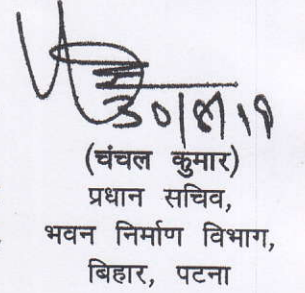 30/8/19
(चंचल कुमार)
प्रधान सचिव,
भवन निर्माण विभाग,
बिहार, पटना